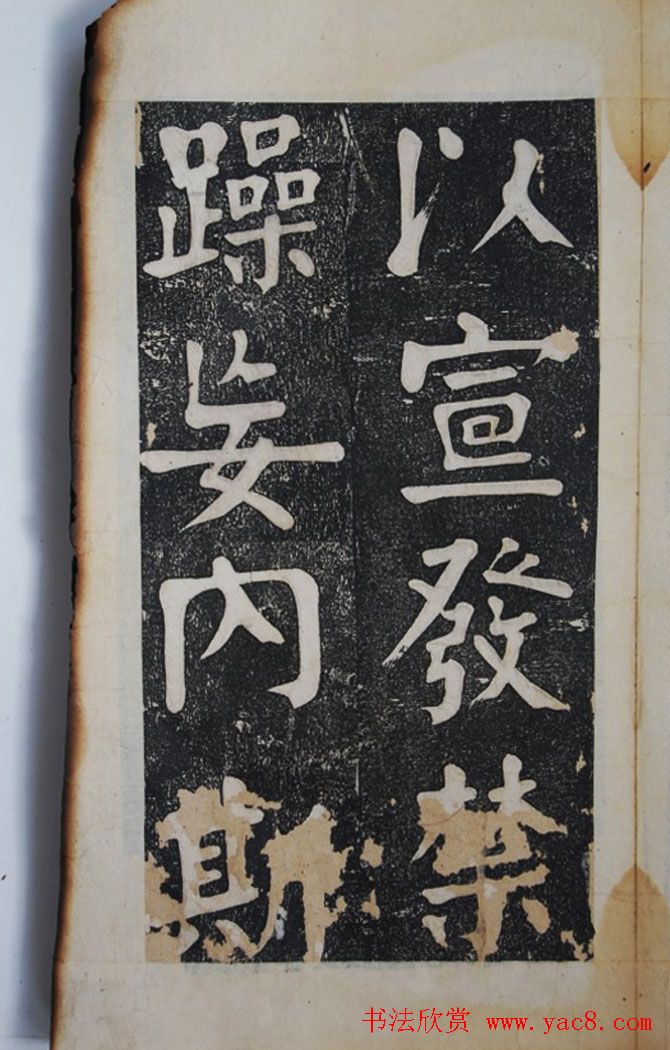 以宣發禁
躁妄內斯
书法欣赏 www.yac8.com